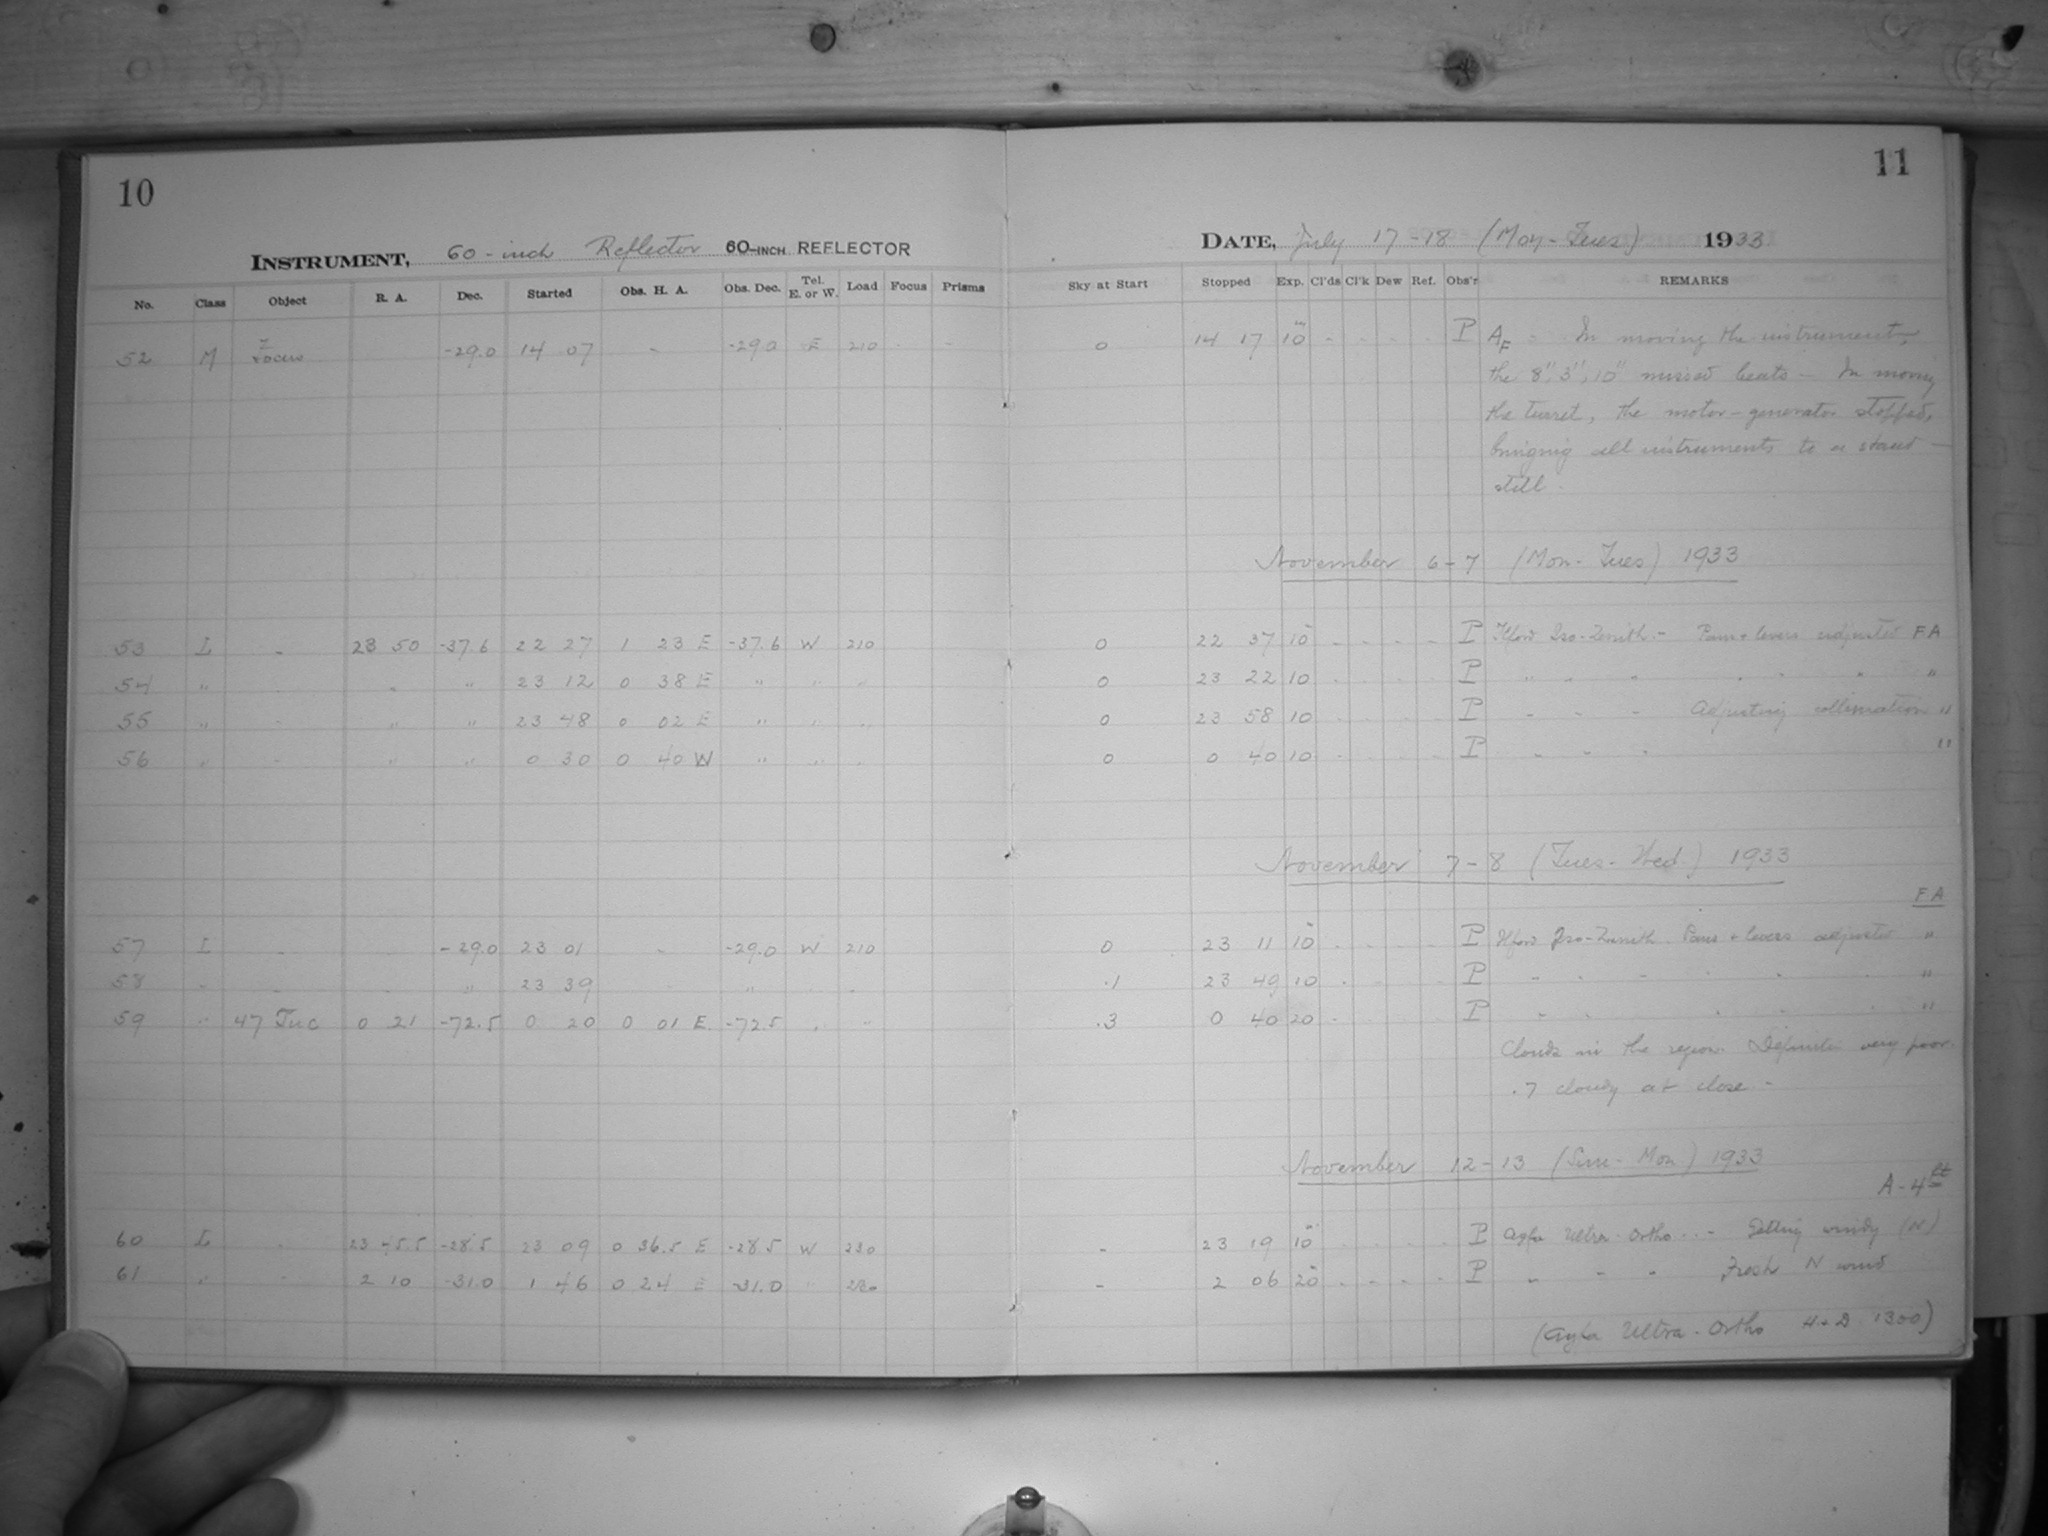 10
INSTRUMENT, 60-inch Reflector 60-INCH REFLECTOR
No. Class Object R. A. Dec. Started Obs. H. A. Obs. Dec. Tel. E. or W. Load Focus Prisms
52 M Z Focus -29.0 14 07 - -29.0 E 210 - -
53 L - 23 50 -37.6 22 27 1 23 E -37.6 W 210
54 " - " " 23 12 0 38 E " " "
55 " - " " 23 48 0 02 E " " "
56 " - " " 0 30 0 40 W " " "
57 L - - -29.0 23 01 - -29.0 W 210
58 " - - " 23 39 - " - -
59 " 47 Tuc 0 21 -72.5 0 20 0 01 E. -72.5 " "
60 L - 23 45.5 -28.5 23 09 0 36.5 E -28.5 W 230
61 " - 2 10 -31.0 1 46 0 24 E -31.0 "
11
DATE, July 17-18 (Mon-Tues) 1933
Sky at Start Stopped Exp. Cl'ds Cl'k Dew Ref. Obs'r REMARKS
0 14 17 10m - - - - P AF - In moving the instrument,
the 8", 3", 10" missed beats - In moving
the turret, the motor-generator stopped,
bringing all instruments to a stand-
still.
November 6-7 (Mon-Tues) 1933
0 22 37 10 - - - - P Ilford Iso-Zenith - Pans + levers adjusted FA
0 23 22 10 - - - - P " " " " " " "
0 23 58 10 - - - - P " " " Adjusting collimation "
0 0 40 10 - - - - P " " " "
November 7-8 (Tues-Wed.) 1933
FA
0 23 11 10 - - - - P Ilford Iso-Zenith. Pans + levers adjusted "
.1 23 49 10 - - - - P " " " " " " "
.3 0 40 20 - - - - P " " " " " "
Clouds in the region. Definition very poor.
.7 cloudy at close -
November 12-13 (Sun-Mon) 1933
A-4ft
- 23 19 10m - - - - P Agfa Ultra-Ortho - Getting windy (N)
- 2 06 20 - - - - P " " " Fresh N wind
(Agfa Ultra-Ortho H+D 1300)